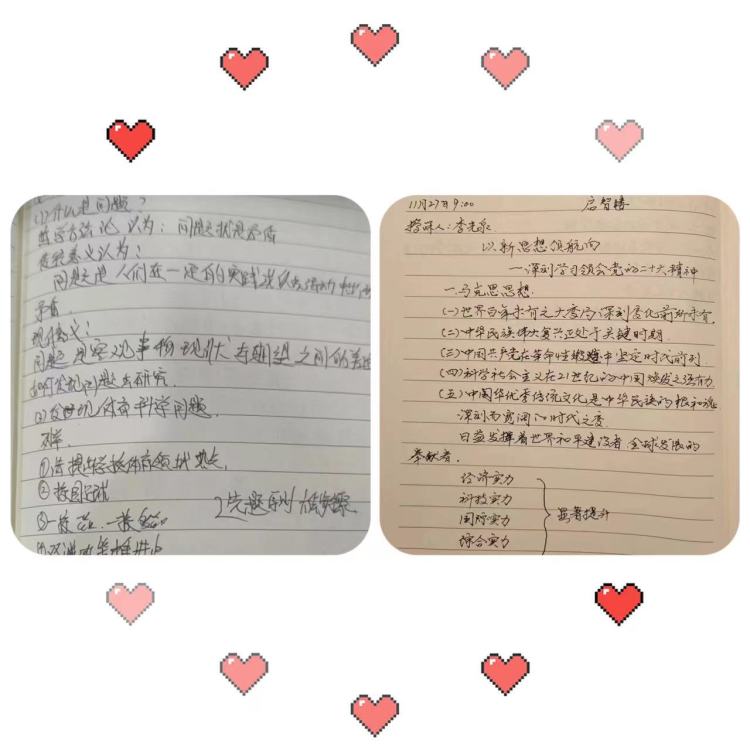 (1)什么是问题?
哲学方法论 认为: 问题就是矛盾
认为:
问题是 人们在一定的实践
矛盾.
现代
问题 是客观事物 现状 与期望 之间的差距
如何发现问题去研究.
体育科学问题.
①
②校园足球
③一校一品.一校多品
2选题原则 
11月27日 9:00 启智楼
授课人:李先
以新思想领航向
—深刻学习领会党的二十大精神
一.马克思思想.
(一)世界百年未有之大变局深刻变化前所未有.
(二)中华民族伟大复兴正处于关键时期.
(三)中国共产党在革命性锻造中坚定时代前列
(四)科学社会主义在21世纪的中国焕发之强有力.
(五)中国华优秀传统文化是中华民族的根和魂
深刻而宽阔的时代之变
日益发挥着世界和平建设者.全球发展的
奉献者.
经济实力
科技实力
国际实力 显著提升
综合实力